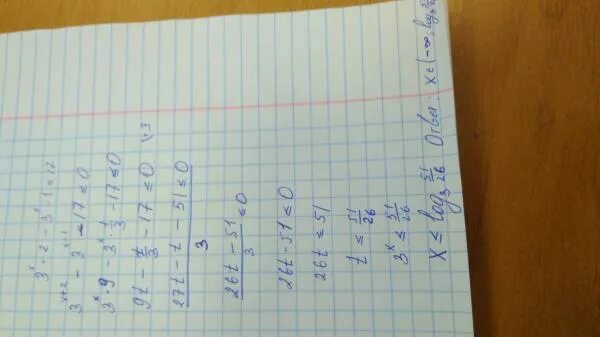 3^x+2 - 3^x-1 ≤ 17
3^x+2 - 3^x-1 - 17 ≤ 0
3^x · 9 - 3^x · 1/3 - 17 ≤ 0
9t - t/3 - 17 ≤ 0 |·3
27t - t - 51 ≤ 0
3
26t - 51 / 3 ≤ 0
26t - 51 ≤ 0
26t ≤ 51
t ≤ 51/26
3^x ≤ 51/26
x ≤ log₃ 51/26 Ответ: x ∈ (-∞; log₃ 51/26